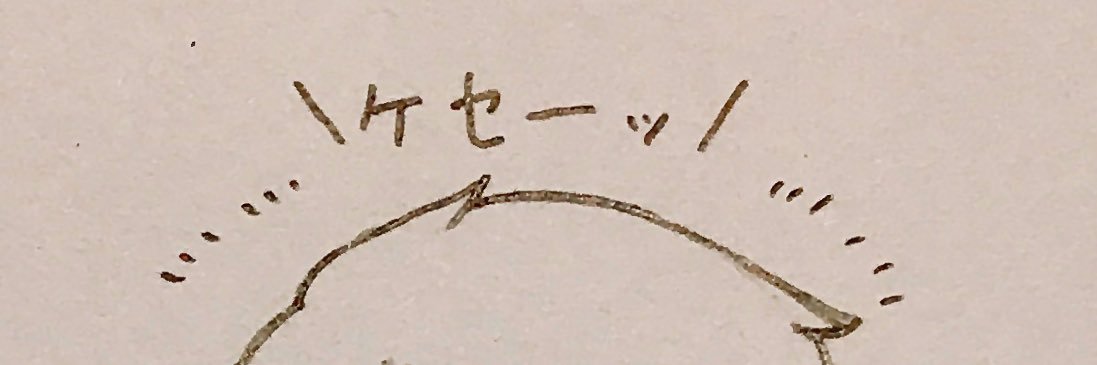 \ケセーッ/